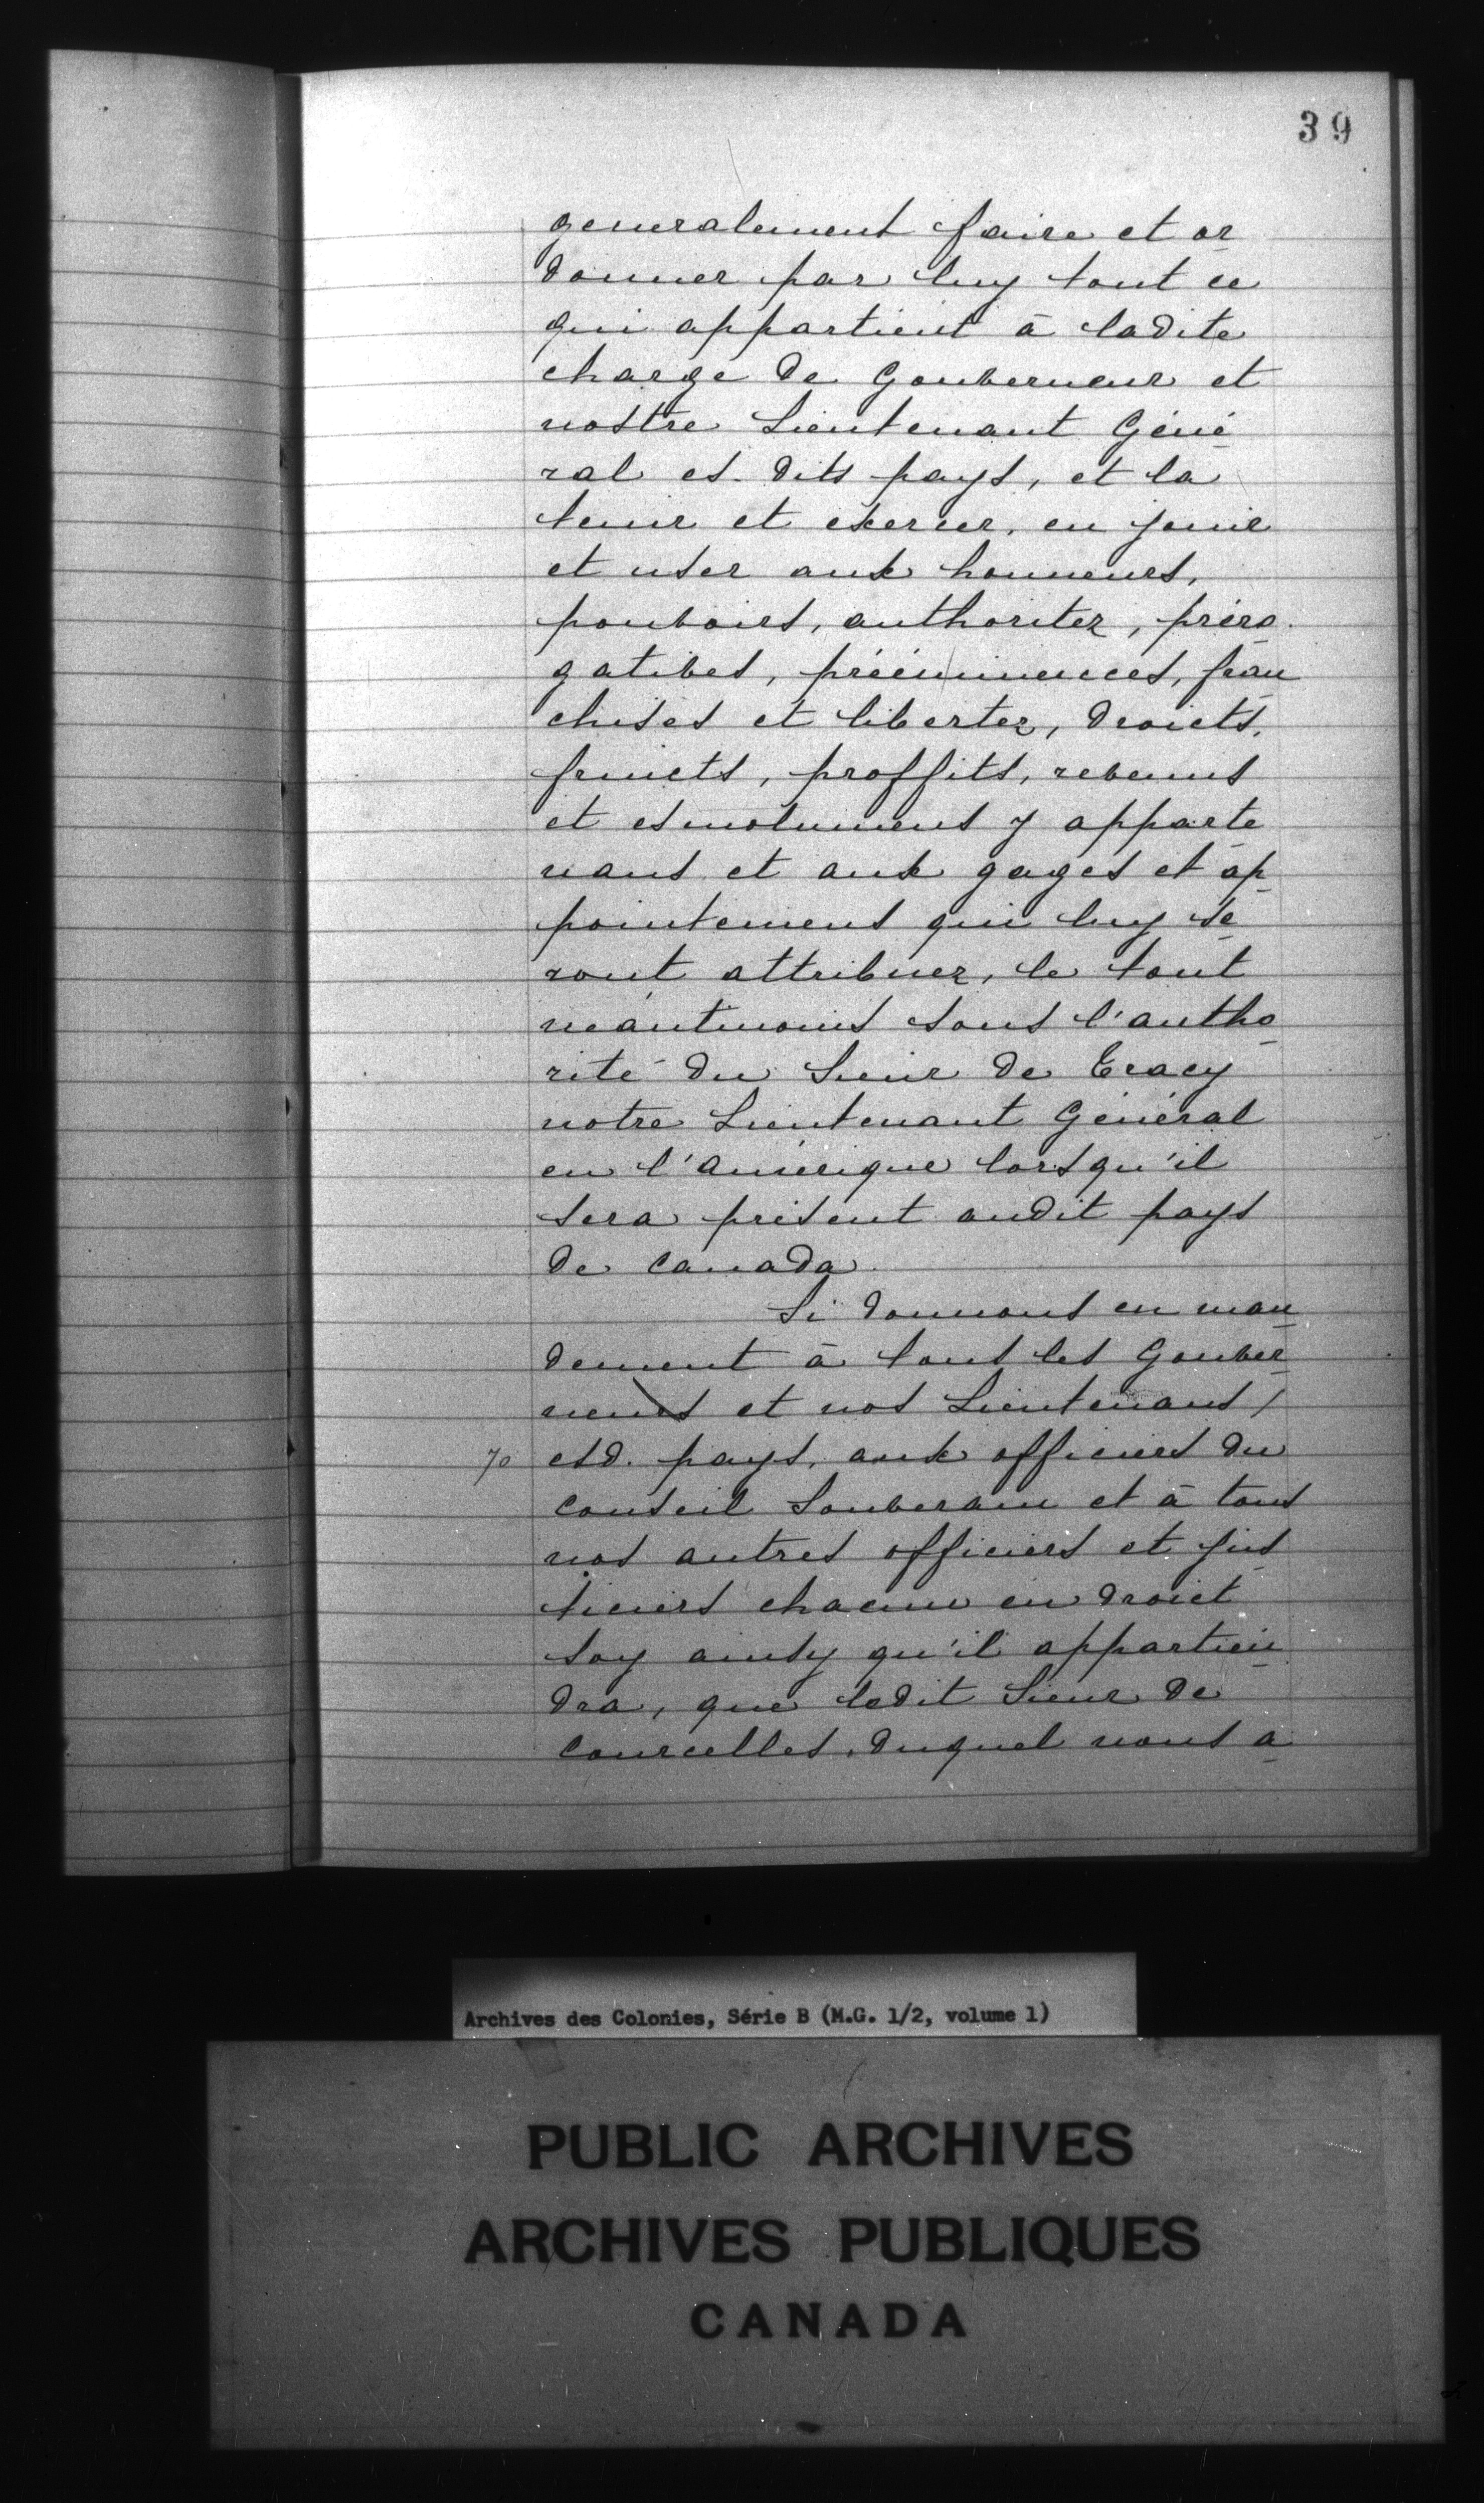 39
generalement faire et or
donner par luy tout ce
qui appartient à ladite
charge de Gouverneur et
nostre Lieutenant Géné
ral es. dits pays, et la
tenir et exercer, en jouir
et user aux honneurs,
pouvoirs, authoritez, préro
gatives, prééminences, fran
chises et libertez, droicts,
fruicts, proffits, revenus
et esmolumens y apparte
nans et aux gages et ap
pointemens qui luy se
ront attribuez, le tout
néantmoins sous l'autho
rité du Sieur de Tracy
notre Lieutenant Général
en l'amérique lorsqu'il
sera présent audit pays
de Canada.
Si donnons en man
dement à tous les Gouver
neurs et nos Lieutenans /
70 esd. pays, aux officiers du
Conseil Souverain et à tous
nos autres officiers et jus
ticiers chacun en droict
soy ainsy qu'il appartien
dra, que ledit Sieur de
Courcelles, duquel nous a
Archives des Colonies, Série B (M.G. 1/2, volume 1)
PUBLIC ARCHIVES
ARCHIVES PUBLIQUES
CANADA